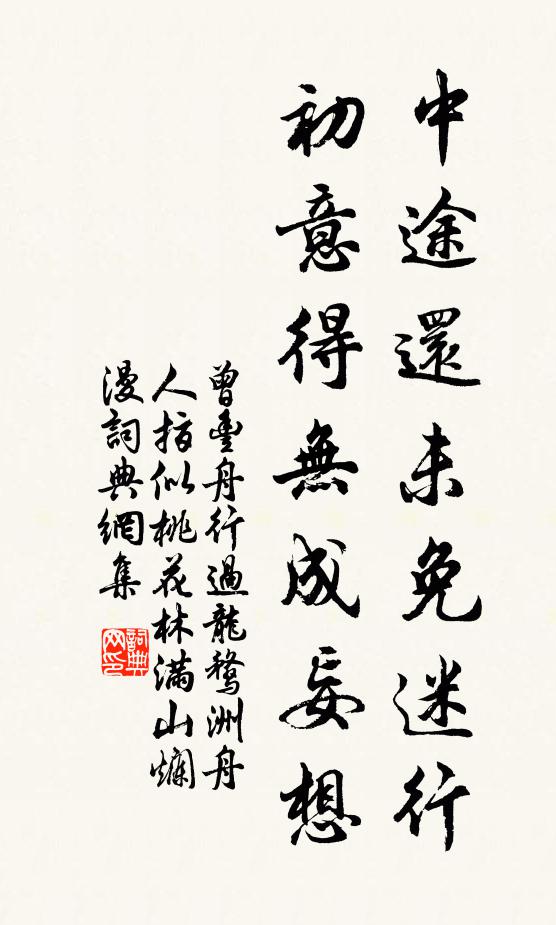 中途還未免迷行
初意得無成妄想
曾豊舟行過龍鶩洲舟
人指似桃花林滿山爛
漫詞典網集
詞典
网印